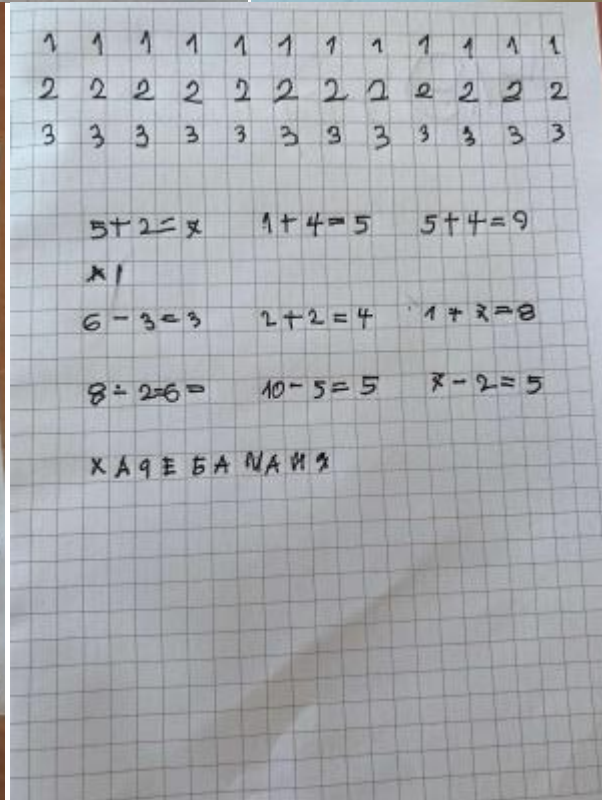 1 1 1 1 1 1 1 1 1 1 1 1
2 2 2 2 2 2 2 2 2 2 2 2
3 3 3 3 3 3 3 3 3 3 3 3
5+2=7 1+4=5 5+4=9
6-3=3 2+2=4 1+7=8
8-2=6= 10-5=5 7-2=5